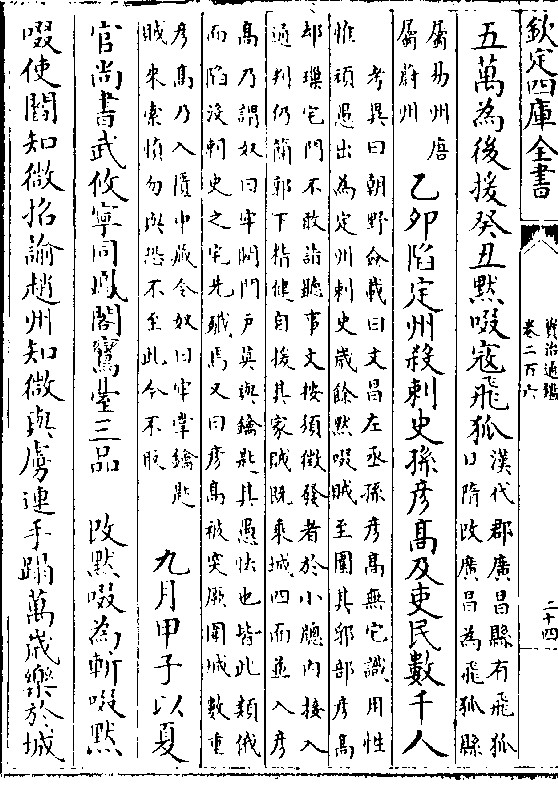 欽定四庫全書
資治通鑑
卷二百六
二十四
五萬為後援癸丑黙啜寇飛狐
漢代郡廣昌縣有飛狐
口隋改廣昌為飛狐縣
屬易州唐
屬蔚州
乙夘陷定州殺刺史孫彥高及吏民數千人
考異曰朝野僉載曰文昌左丞孫彥高無它識用性
惟頑愚出為定州刺史嵗餘黙啜賊至圍其郛部彥高
却鏁宅門不敢詣聽事文按須徵發者於小牕内接入
通判仍簡郭下精健自援其家賊既乘城四面並入彥
高乃謂奴曰牢關門戶莫與鑰匙其愚怯也皆此類俄
而陷没刺史之宅先殱焉又曰彥高被突厥圍城數重
彥高乃入匱中藏令奴曰牢掌鑰匙
賊來索慎勿與恐不至此今不取
九月甲子以夏
官尚書武攸寧同鳳閣鸞臺三品　改黙啜為斬啜黙
啜使閻知微招諭趙州知微與虜連手蹋萬嵗樂於城